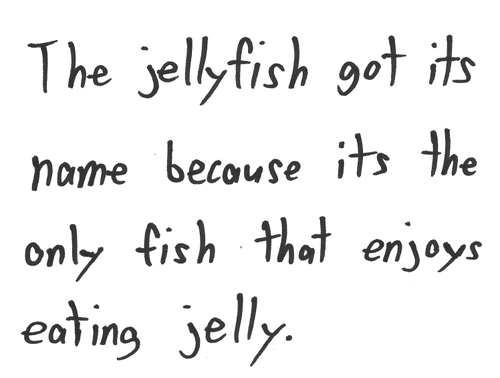 The jellyfish got its
name because its the
only fish that enjoys
eating jelly.